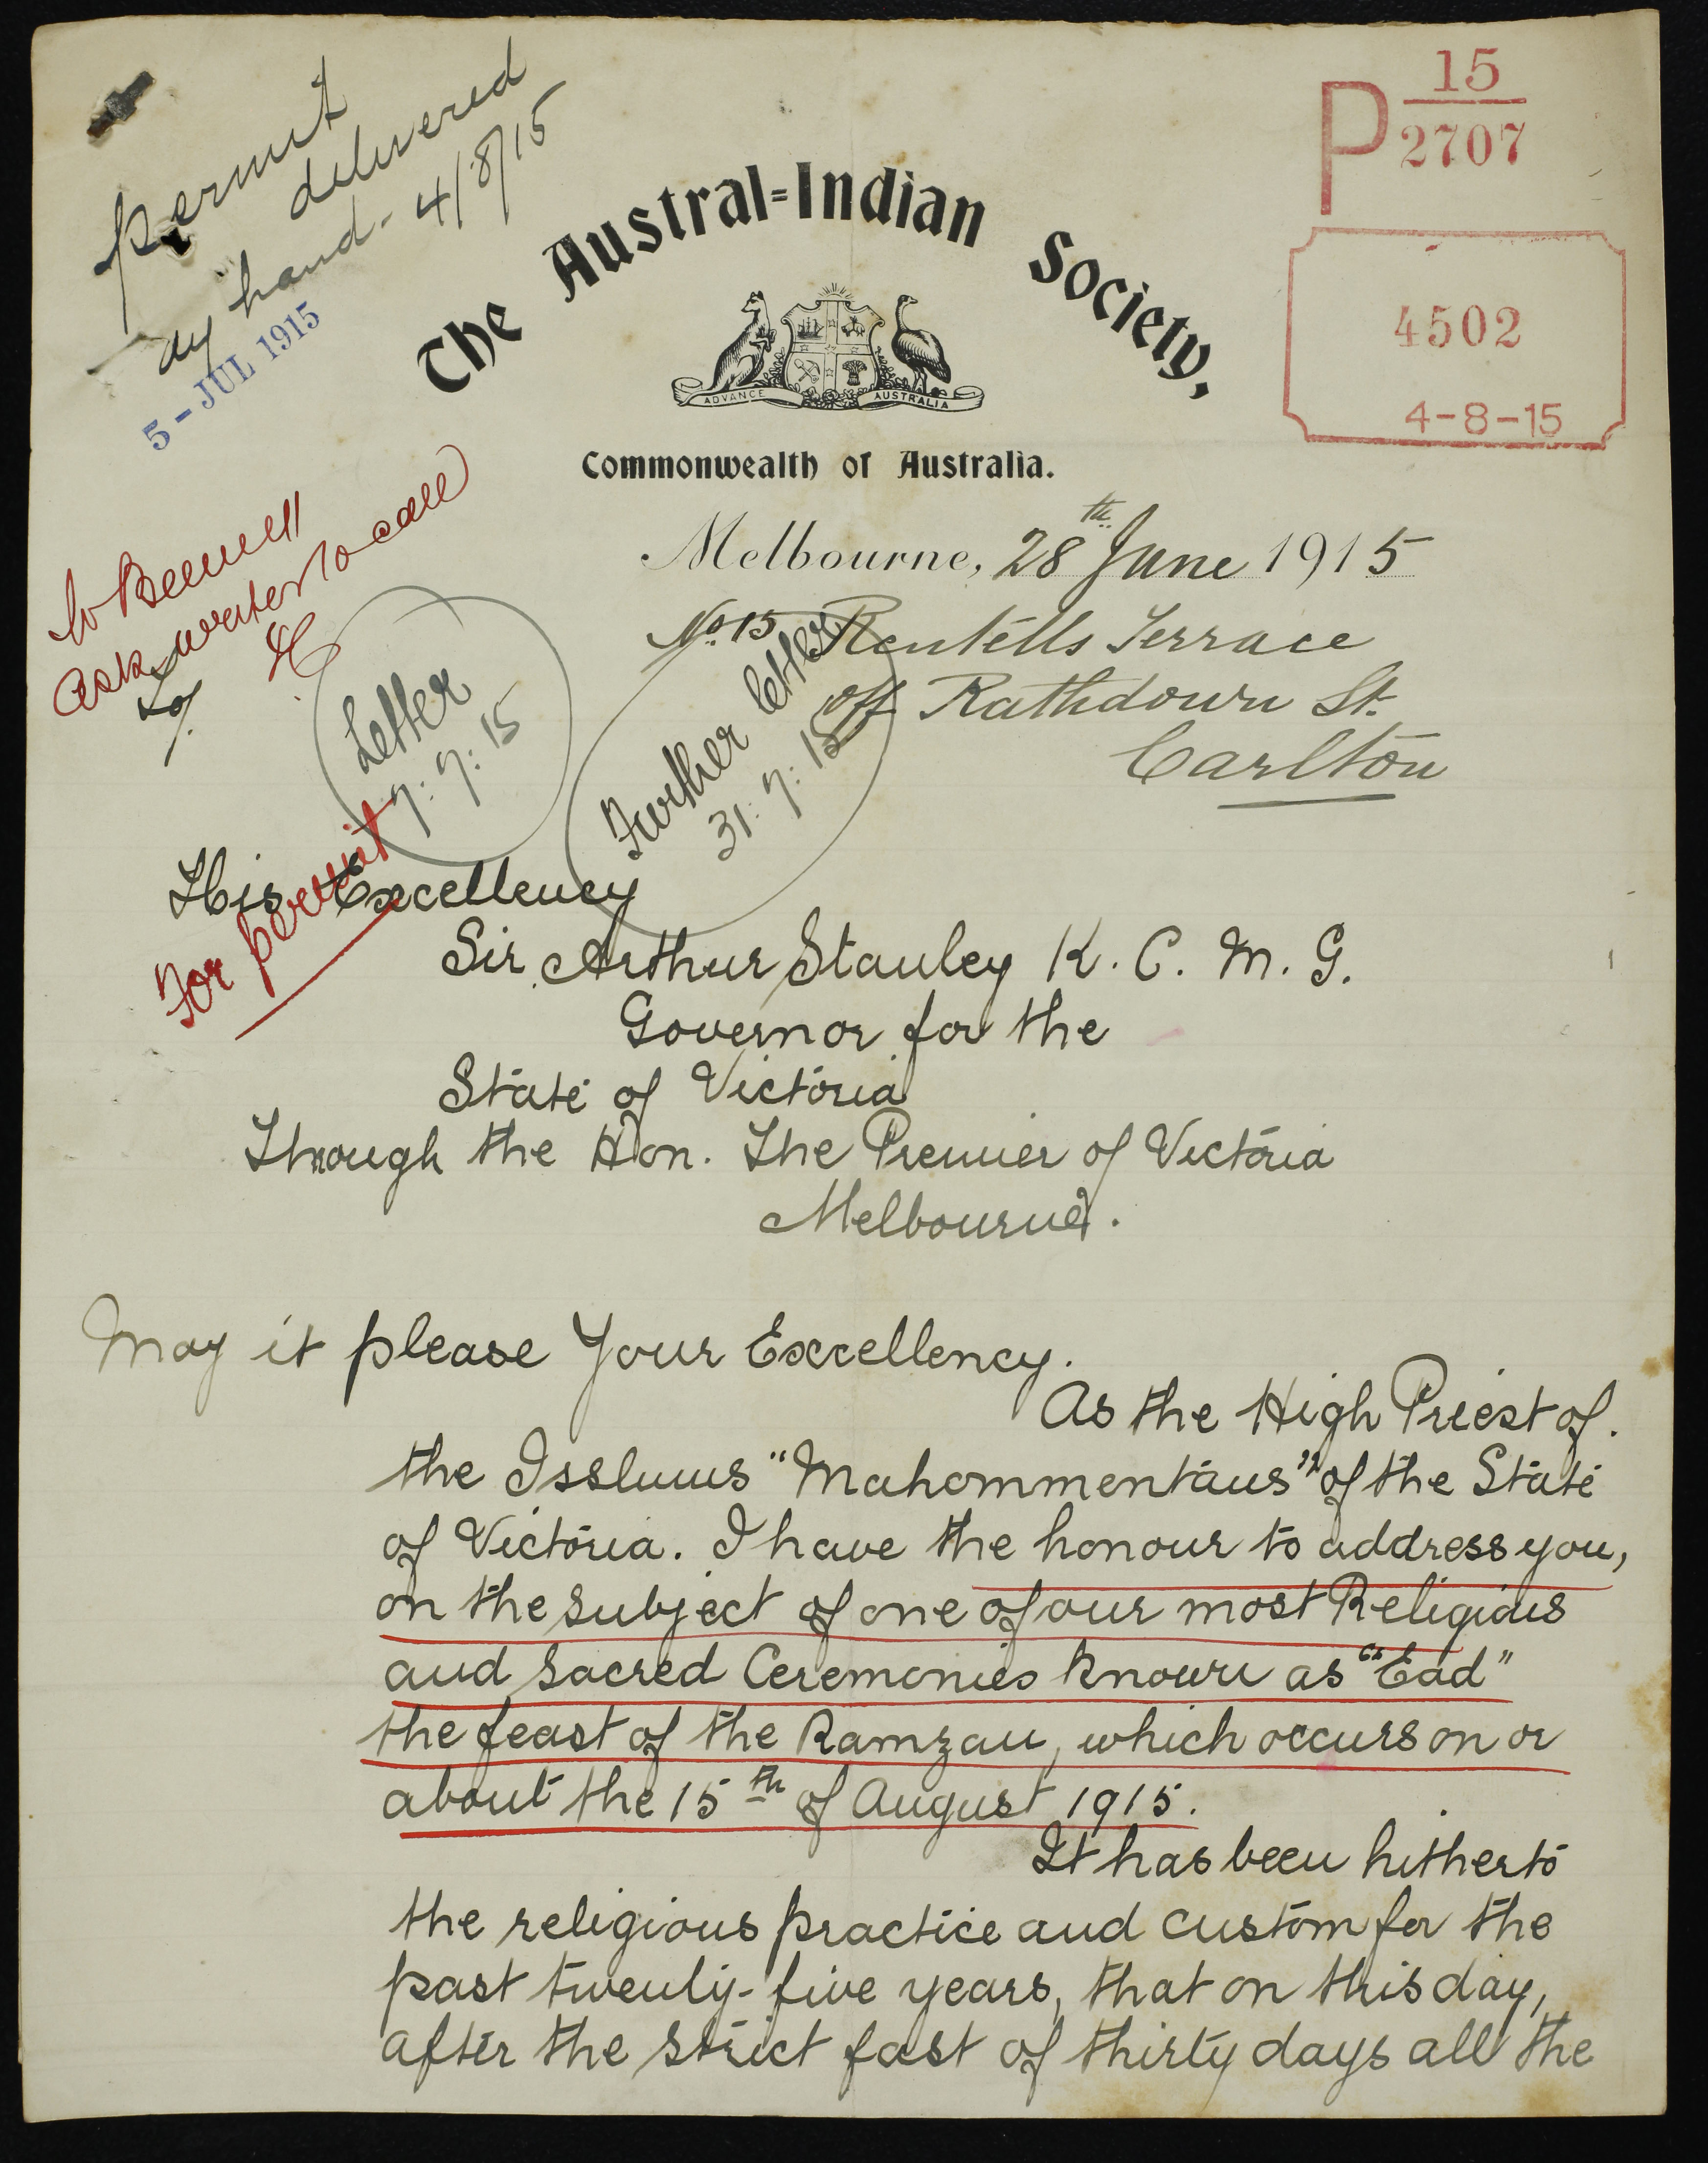 permit
delivered
by hand - 4/8/15
5 - JUL 1915
P 15
2707
4502
4-8-15
The Austral-Indian Society,
ADVANCE AUSTRALIA
Commonwealth of Australia.
Ask writer to call
Melbourne, 28th June 1915
No. 15 Rentells Terrace
off Rathdown St.
Carlton
Letter
7:7:15
Further letter
31:7:15
For permit
His Excellency
Sir Arthur Stanley K. C. M. G.
Governor for the
State of Victoria
Through the Hon. The Premier of Victoria
Melbourne.
May it please Your Excellency.
As the High Priest of.
the Isslums "Mahommentans" of the State
of Victoria. I have the honour to address you,
on the subject of one of our most Religious
and sacred Ceremonies known as "Ead"
the feast of the Ramzan, which occurs on or
about the 15th of August 1915.
It has been hitherto
the religious practice and custom for the
past twenty-five years, that on this day,
after the strict fast of thirty days all the